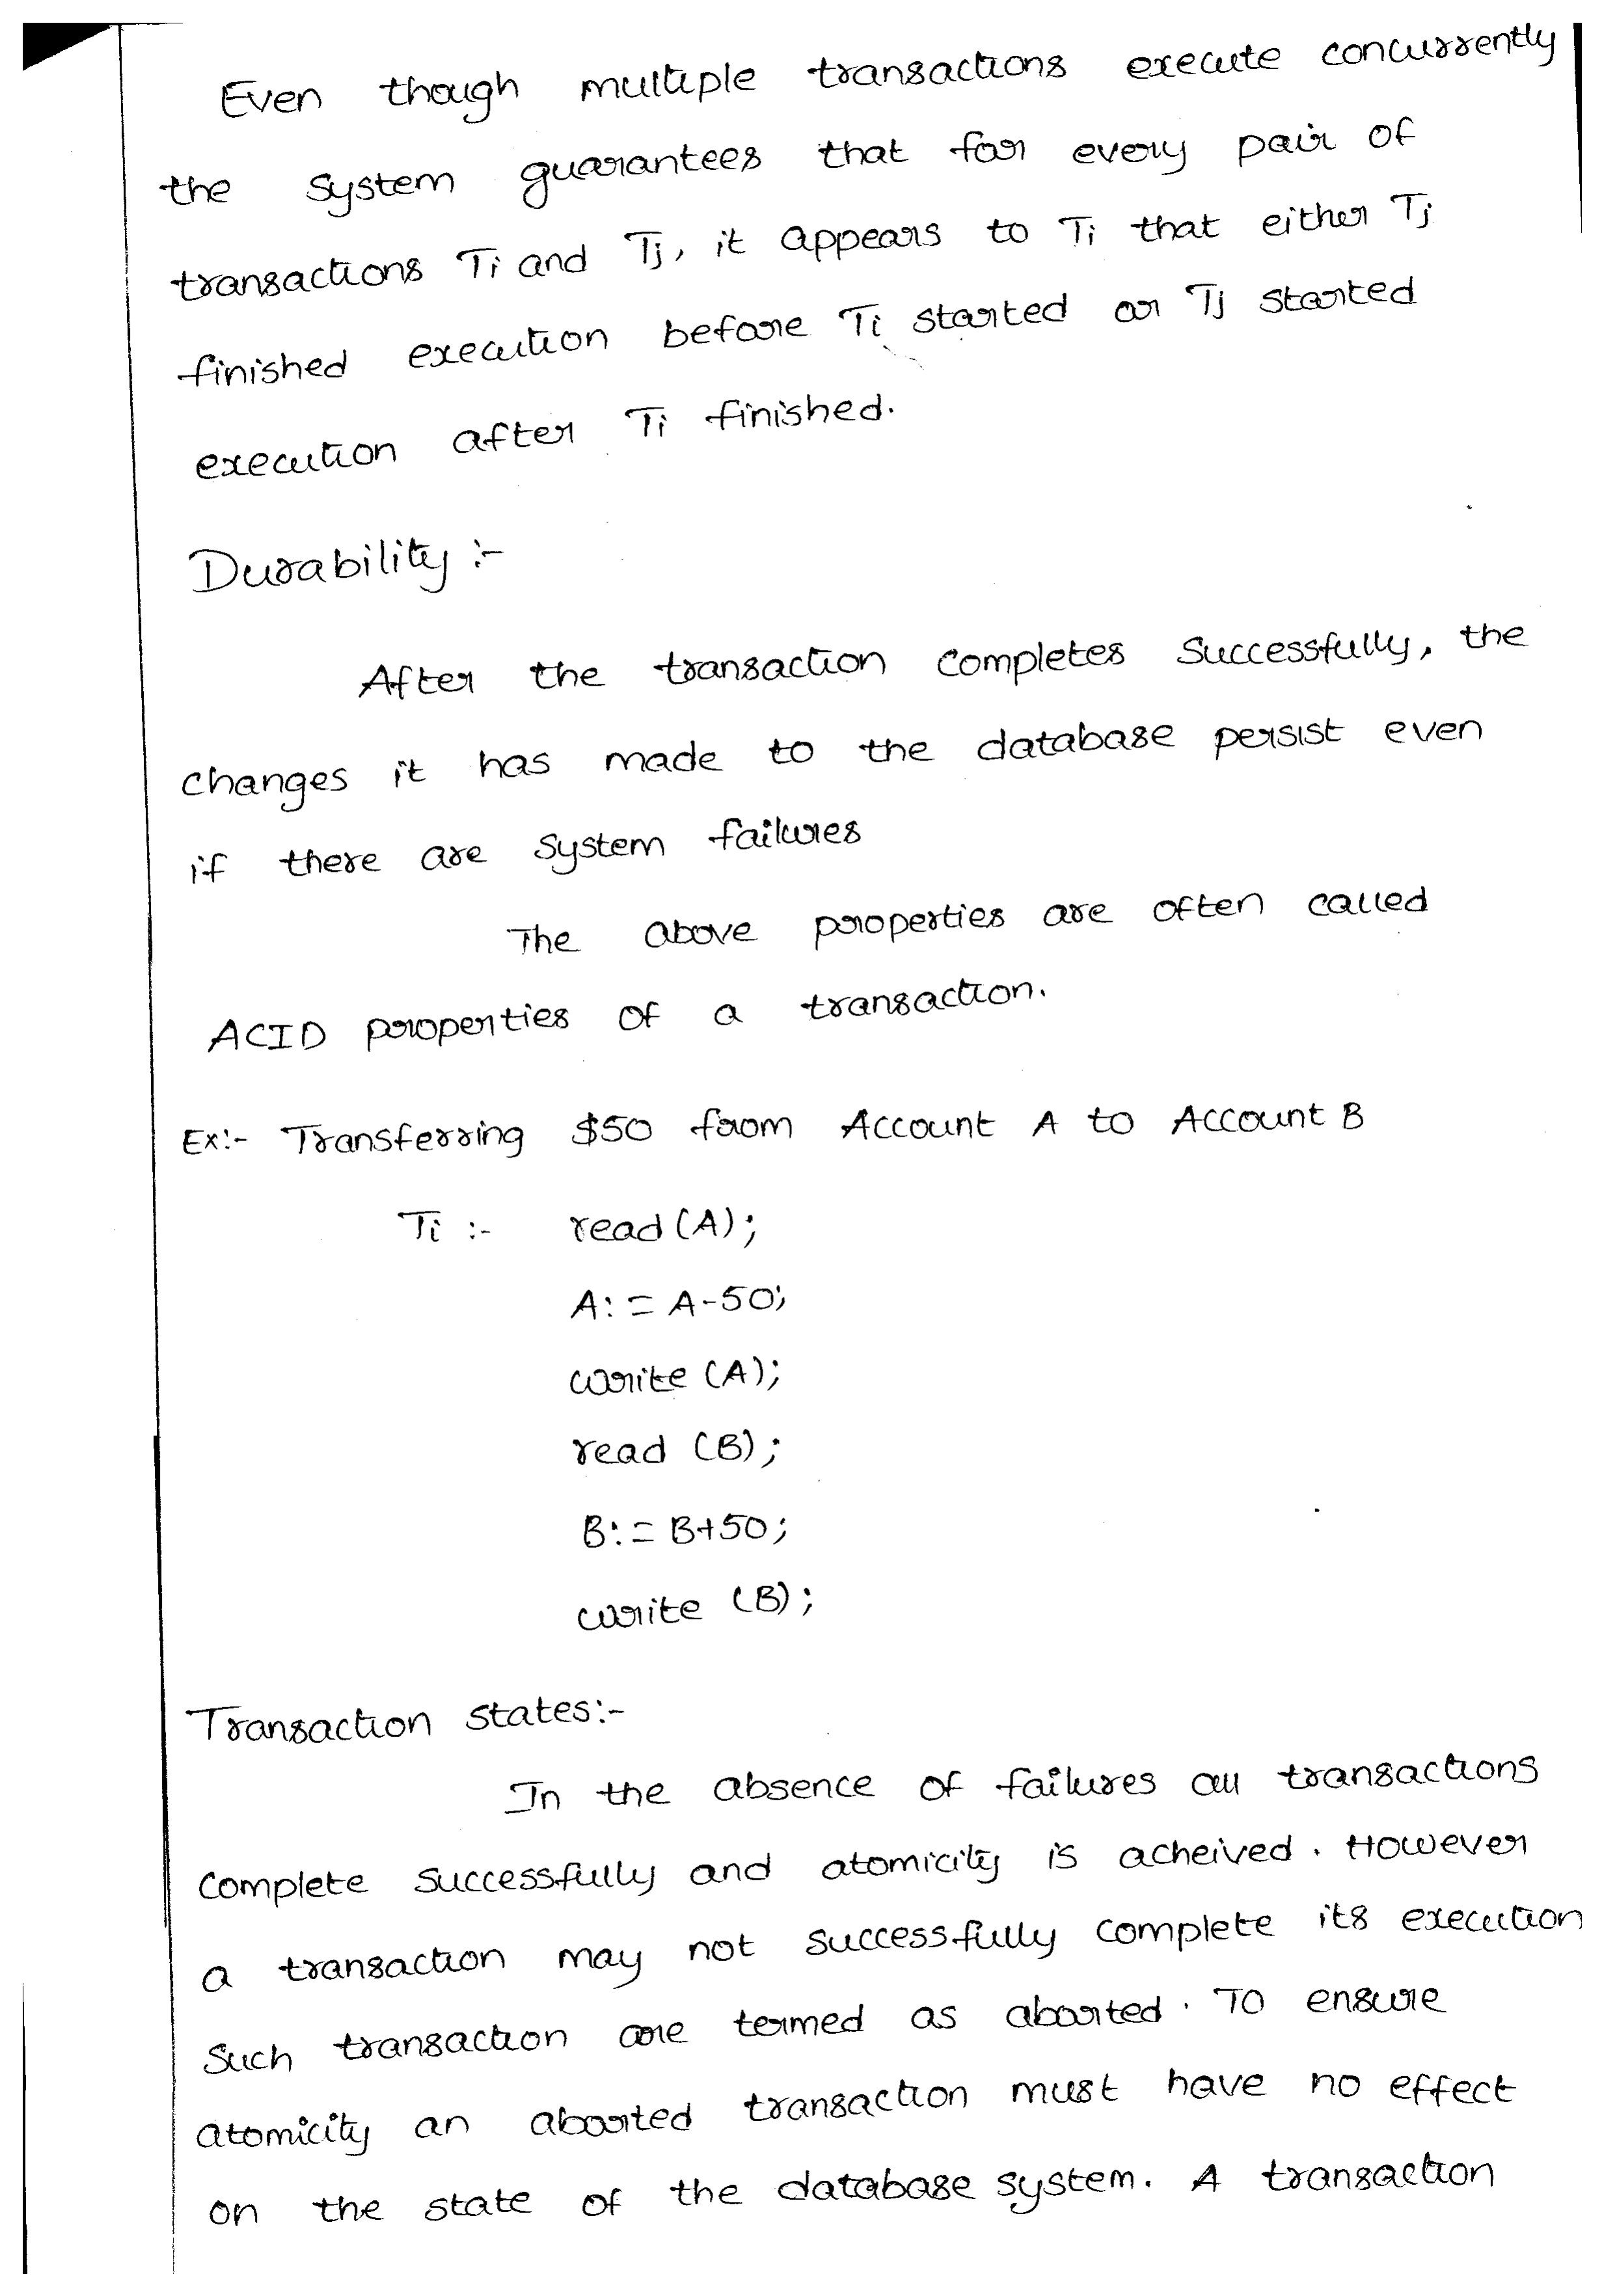 Even though multiple transactions execute concurrently
the system guarantees that for every pair of
transactions Ti and Tj, it appears to Ti that either Tj
finished execution before Ti started or Tj started
execution after Ti finished.
Durability :-
After the transaction completes Successfully, the
changes it has made to the database persist even
if there are system failures
The above properties are often called
ACID properties of a transaction.
Ex:- Transferring $50 from Account A to Account B
Ti :- read (A);
A: = A-50;
write (A);
read (B);
B: = B+50;
write (B);
Transaction states:-
In the absence of failures all transactions
complete successfully and atomicity is acheived. However
a transaction may not successfully complete its execution
Such transaction are termed as aborted. To ensure
atomicity an aborted transaction must have no effect
on the state of the database system. A transaction